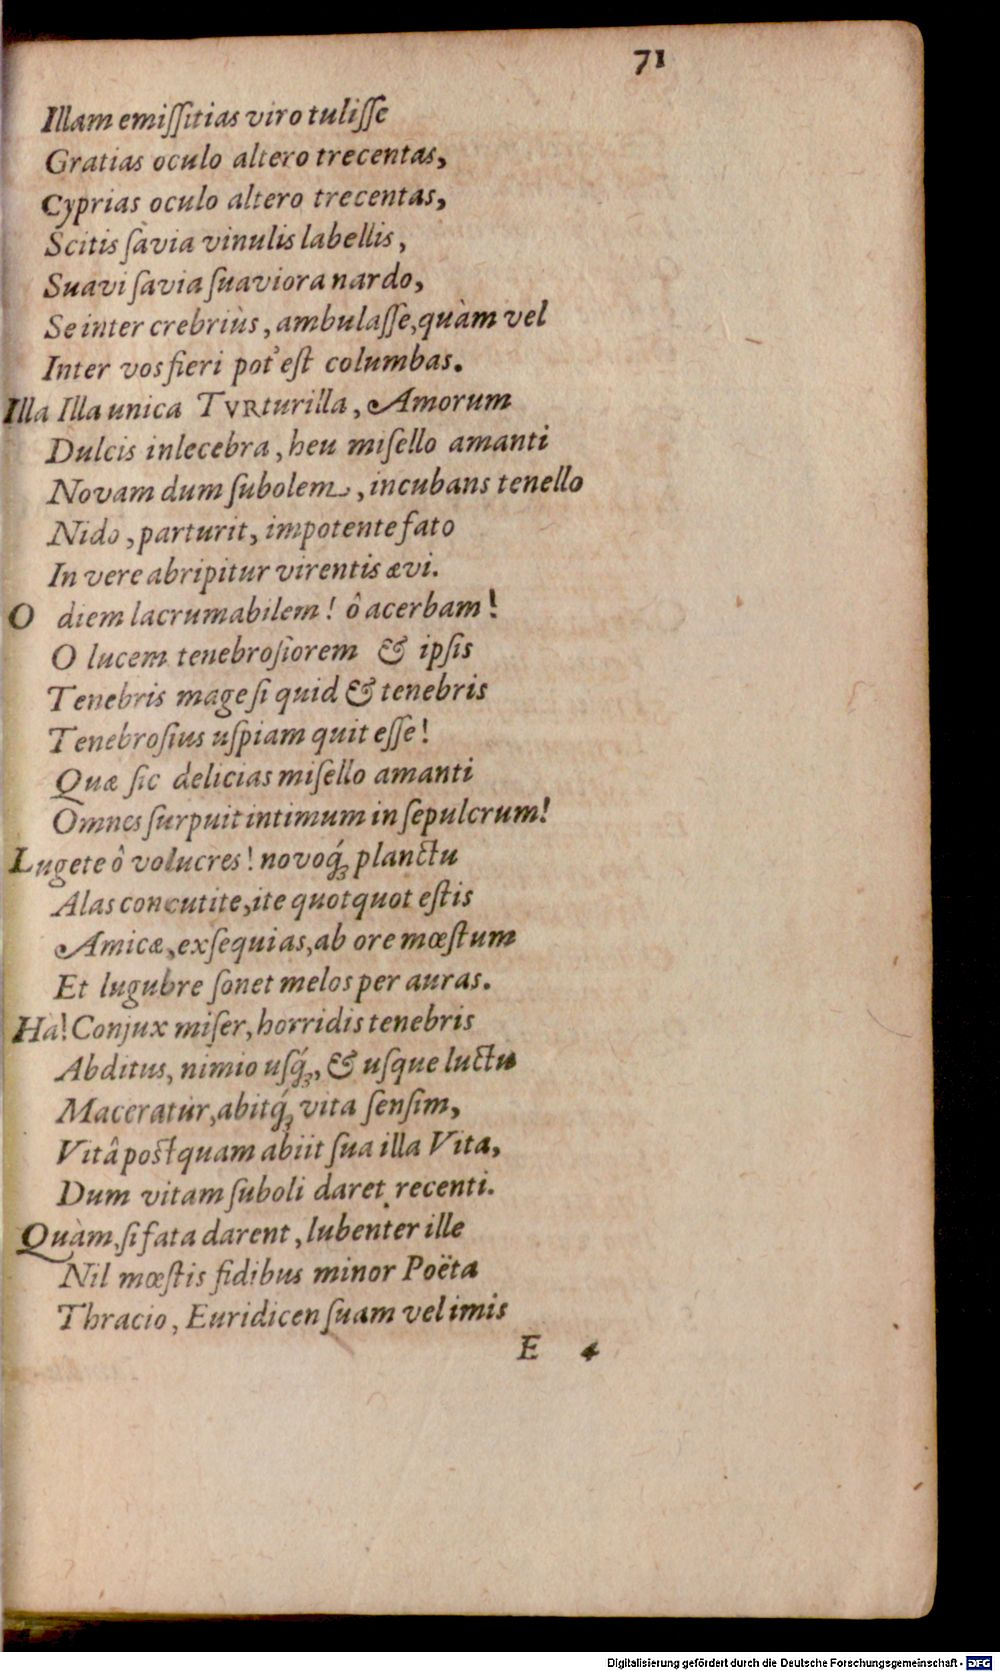 71
Illam emiſſitias viro tuliſſe
Gratias oculo altero trecentas,
Cyprias oculo altero trecentas,
Scitis ſavia vinulis labellis,
Suavi ſavia ſuaviora nardo,
Se inter crebriùs, ambulaſſe, quàm vel
Inter vos fieri pot'eſt columbas.
Illa Illa unica TVRturilla, Amorum
Dulcis inlecebra, heu miſello amanti
Novam dum ſubolem, incubans tenello
Nido, parturit, impotente fato
In vere abripitur virentis ævi.
O diem lacrumabilem! ô acerbam!
O lucem tenebroſiorem & ipſis
Tenebris mage ſi quid & tenebris
Tenebroſius uſpiam quit eſſe!
Quæ ſic delicias miſello amanti
Omnes ſurpuit intimum in ſepulcrum!
Lugete ô volucres! novoq́; planctu
Alas concutite, ite quotquot eſtis
Amicæ, exſequias, ab ore mœſtum
Et lugubre ſonet melos per auras.
Ha! Conjux miſer, horridis tenebris
Abditus, nimio uſq́;, & uſque luctu
Maceratur, abitq́; vita ſenſim,
Vitâ poſtquam abiit ſua illa Vita,
Dum vitam ſuboli daret recenti.
Quàm, ſi fata darent, lubenter ille
Nil mœſtis fidibus minor Poëta
Thracio, Euridicen ſuam vel imis
E 4
Digitalisierung gefördert durch die Deutsche Forschungsgemeinschaft - DFG